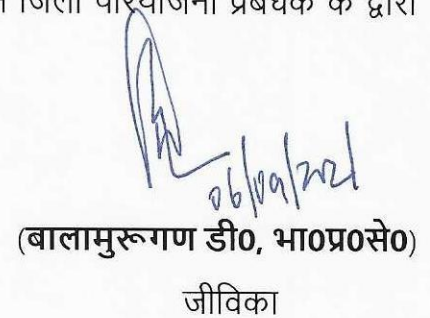 जिला परियोजना प्रबंधक के द्वारा
06/09/2021
(बालामुरूगण डी0, भा0प्र0से0)
जीविका